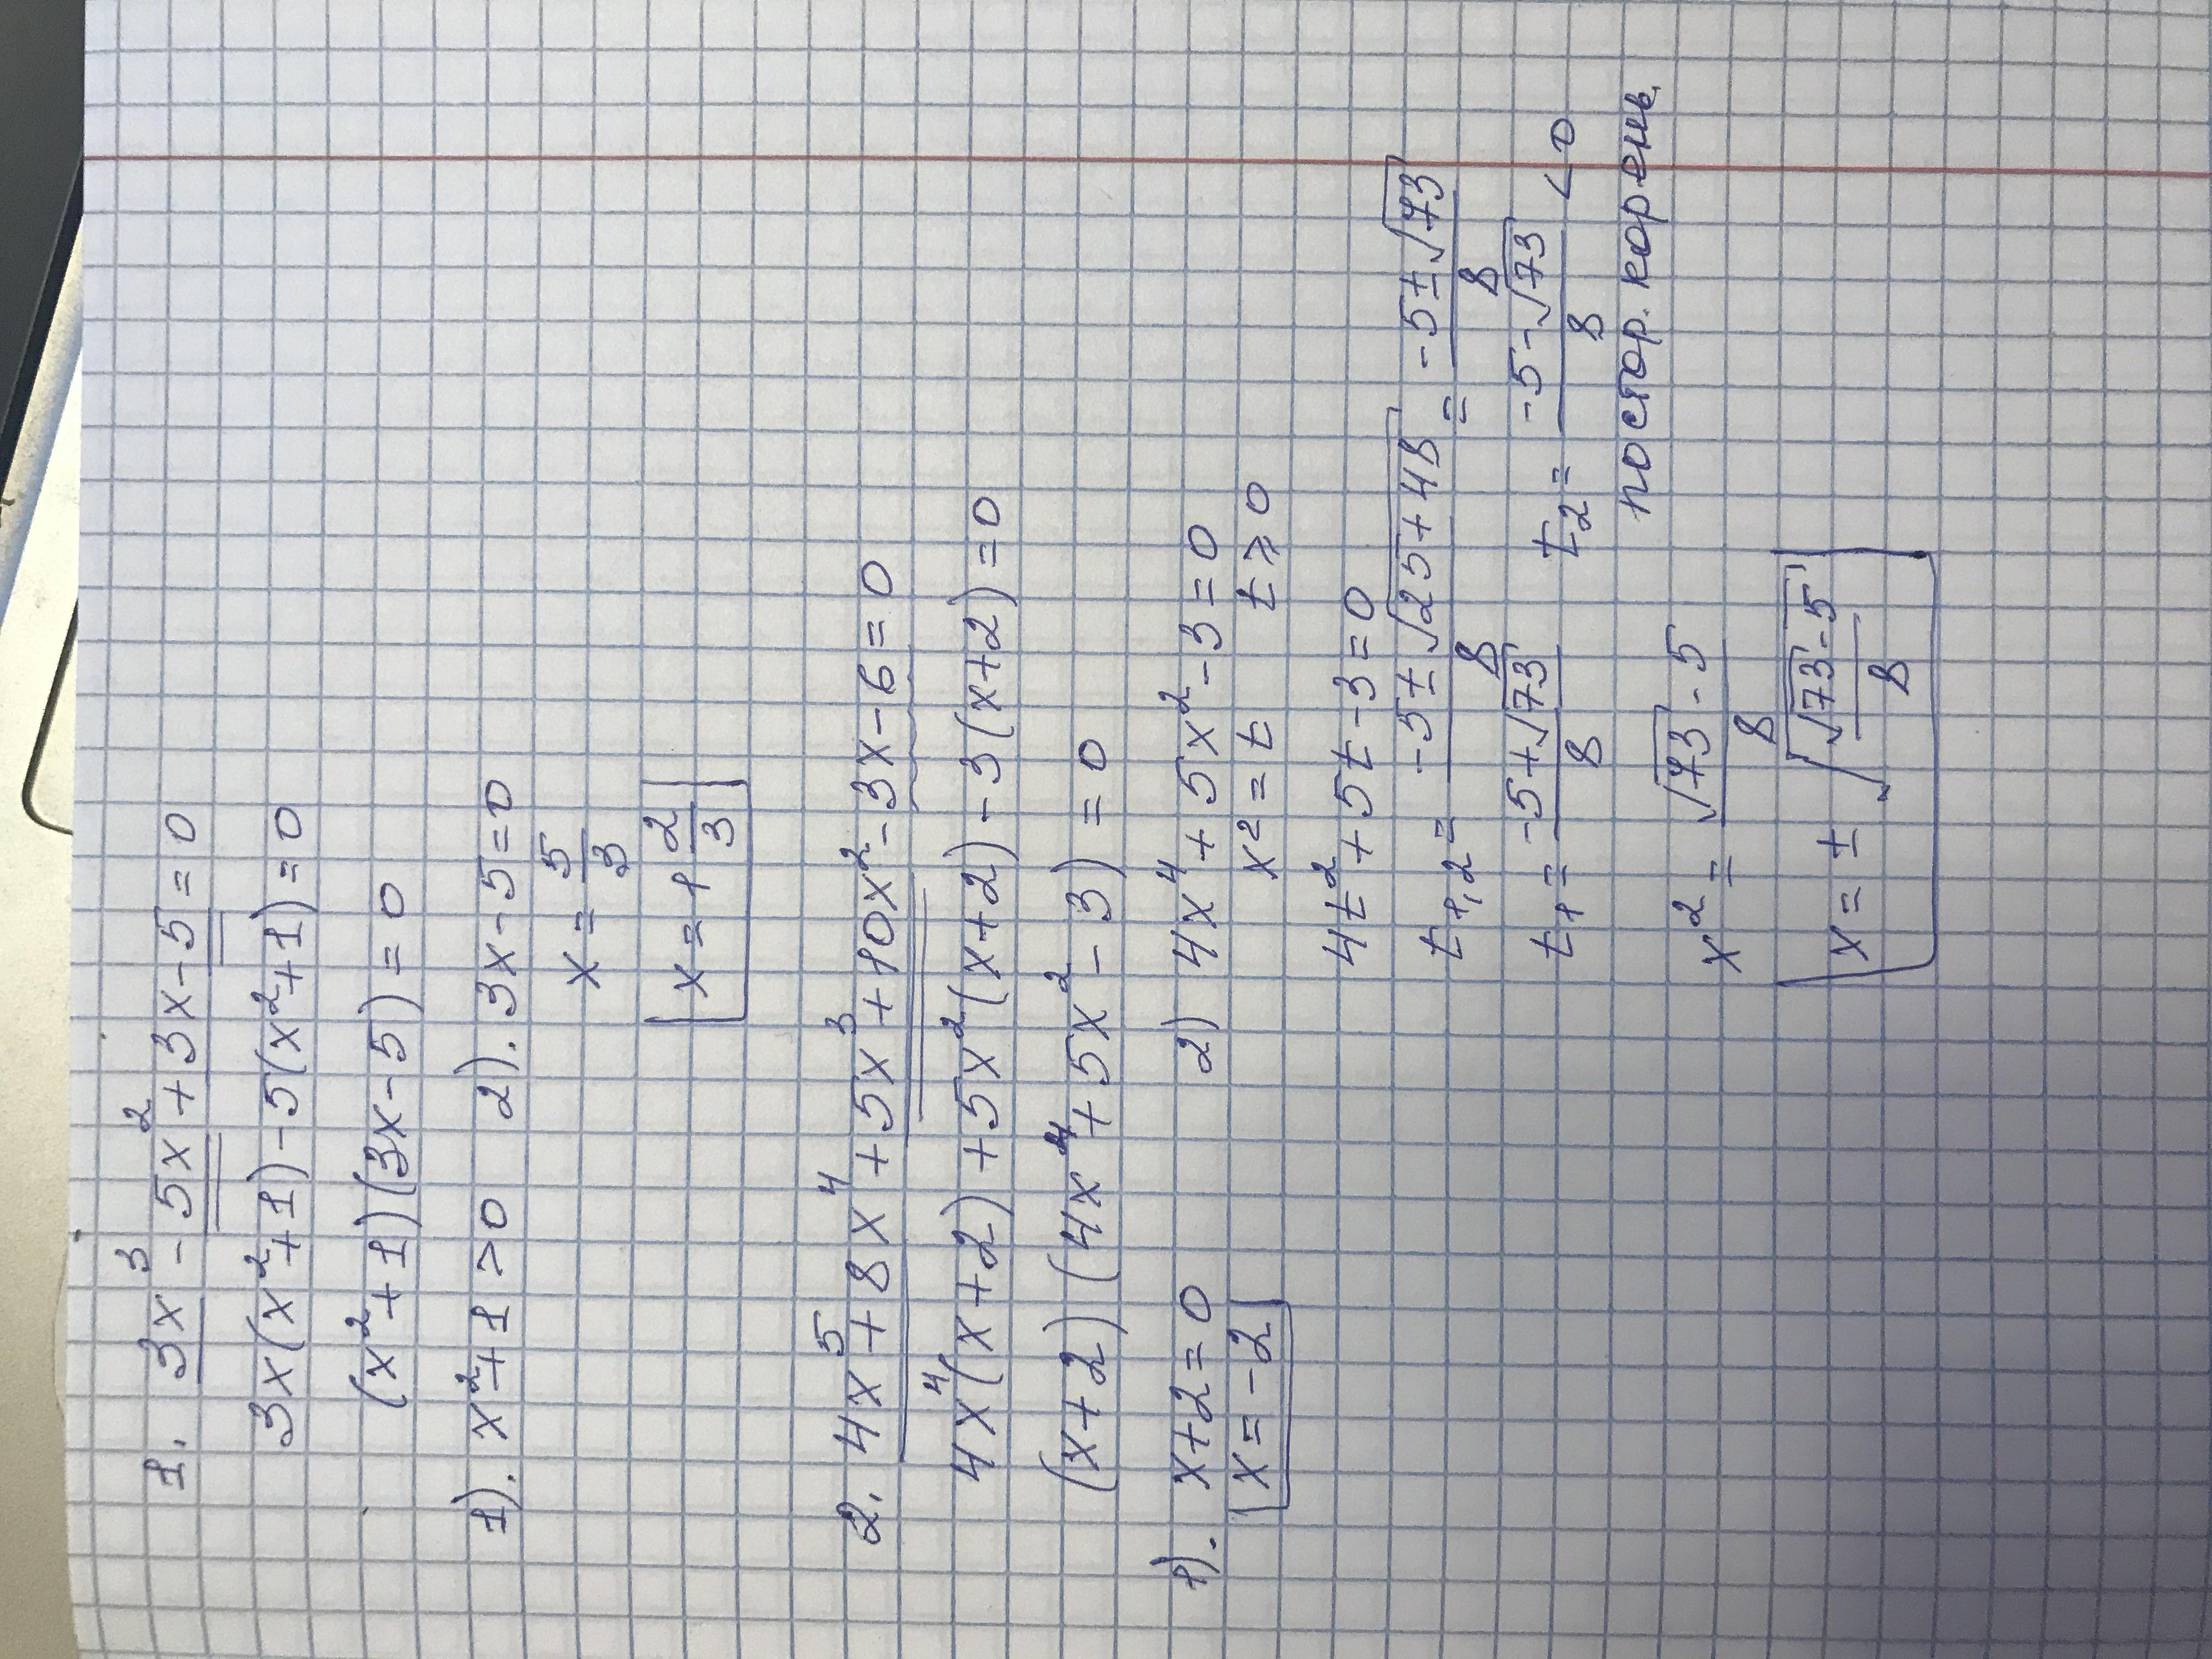 1. 3x³ - 5x² + 3x - 5 = 0
3x(x² + 1) - 5(x² + 1) = 0
(x² + 1)(3x - 5) = 0
1). x² + 1 > 0 2). 3x - 5 = 0
x = 5/3
x = 1 2/3
2. 4x⁵ + 8x⁴ + 5x³ + 10x² - 3x - 6 = 0
4x⁴(x + 2) + 5x²(x + 2) - 3(x + 2) = 0
(x + 2)(4x⁴ + 5x² - 3) = 0
1). x + 2 = 0 2) 4x⁴ + 5x² - 3 = 0
x = -2 x² = t t ⩾ 0
4t² + 5t - 3 = 0
t₁,₂ = (-5 ± √(25 + 48))/8 = (-5 ± √73)/8
t₁ = (-5 + √73)/8 t₂ = (-5 - √73)/8 < 0
постор. корень
x² = (√73 - 5)/8
x = ± √((√73 - 5)/8)